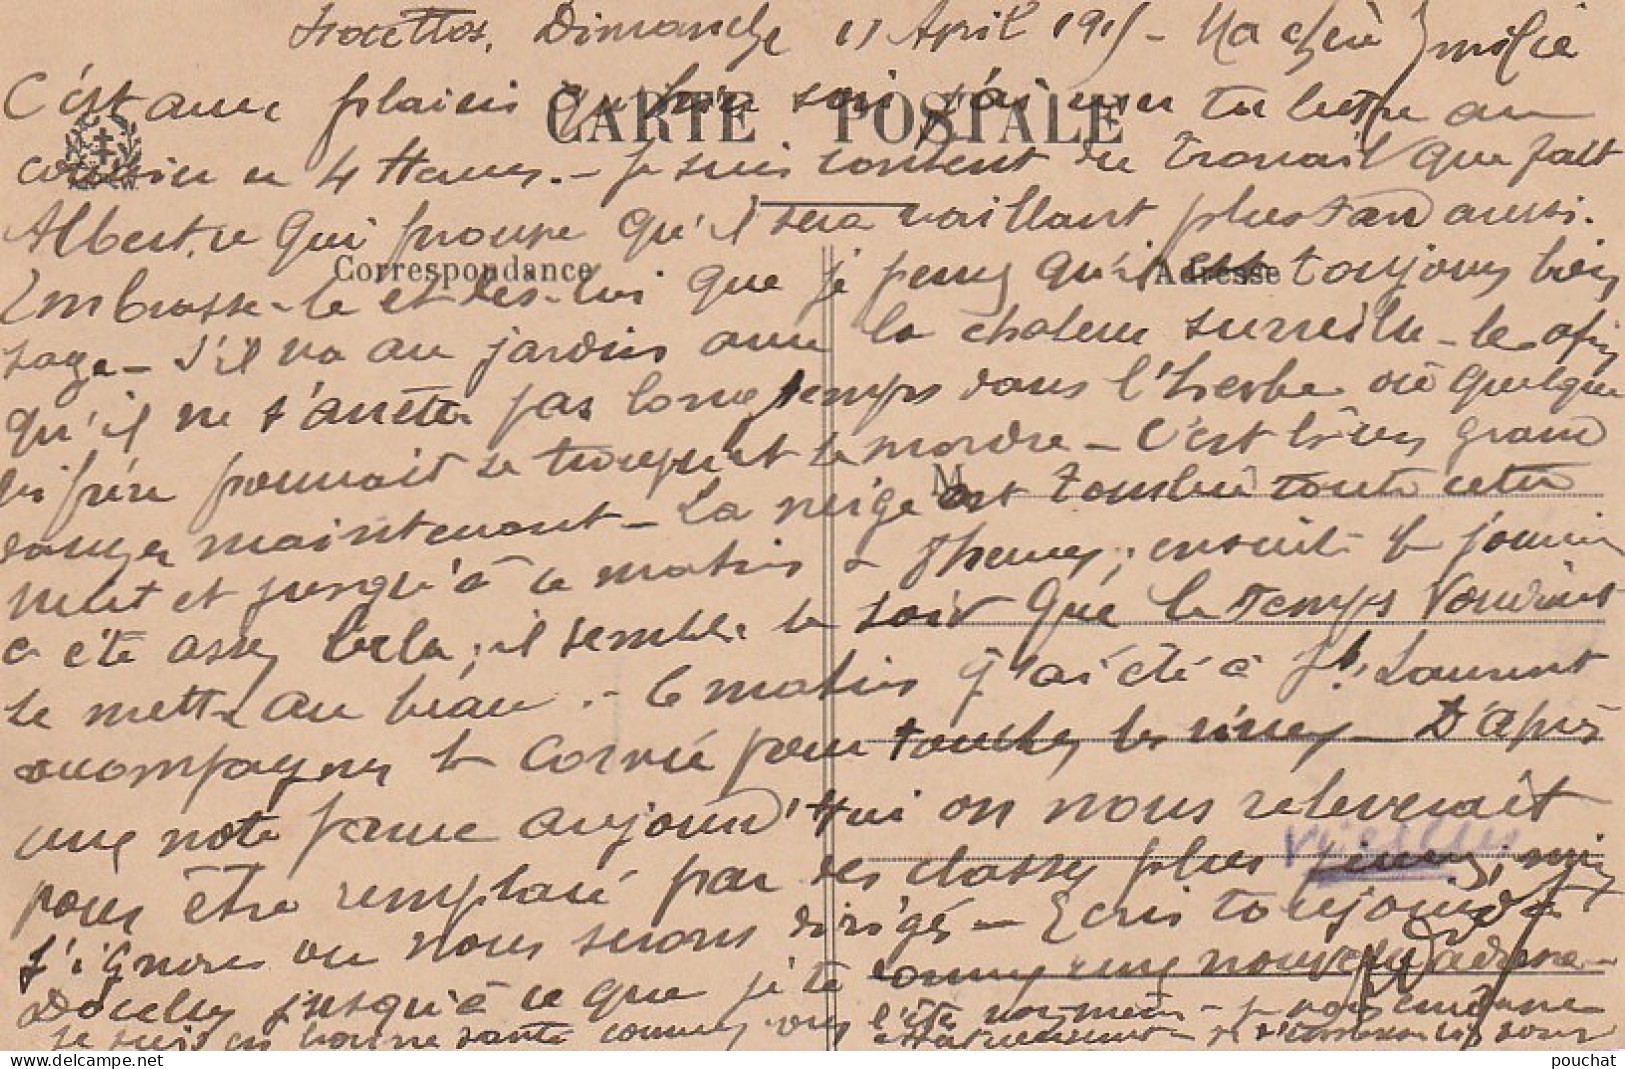 Dimanche 11 April 1915 - Ma chère Emilie
CARTE POSTALE
C'est avec plaisir qu'hier soir j'ai reçu ta lettre au
en 4 Heures. - Je suis content du Travail que fait
Albert, ce qui prouve qu'il sera vaillant plus Tard aussi.
Correspondance
Adresse
Embrasse-le et dis-lui que je pense qu'il est toujours bien
sage - S'il va au jardin avec la chaleur surveille-le afin
qu'il ne s'arrête pas longtemps dans l'herbe où quelque
vipère pourrait se trouver et le mordre - C'est bien grand
danger maintenant - La neige est tombée toute cette
nuit et jusqu'à ce matin à 9 heures; ensuite la journée
a été assez belle; il semble ce soir que le Temps voudrait
se mettre au beau. - Ce matin j'ai été à St Laurent
accompagner la corvée pour toucher les vivres - D'après
une note parue aujourd'Hui on nous relèverait
pour être remplacé par des classes plus vieilles jeunes, mais
j'ignore où nous serons dirigés - Ecris toujours à
Doucelles jusqu'à ce que je te donne une nouvelle adresse -
Je suis en bonne santé comme vous l'êtes vous-même - Je vous embrasse
affectueusement -
pouchat